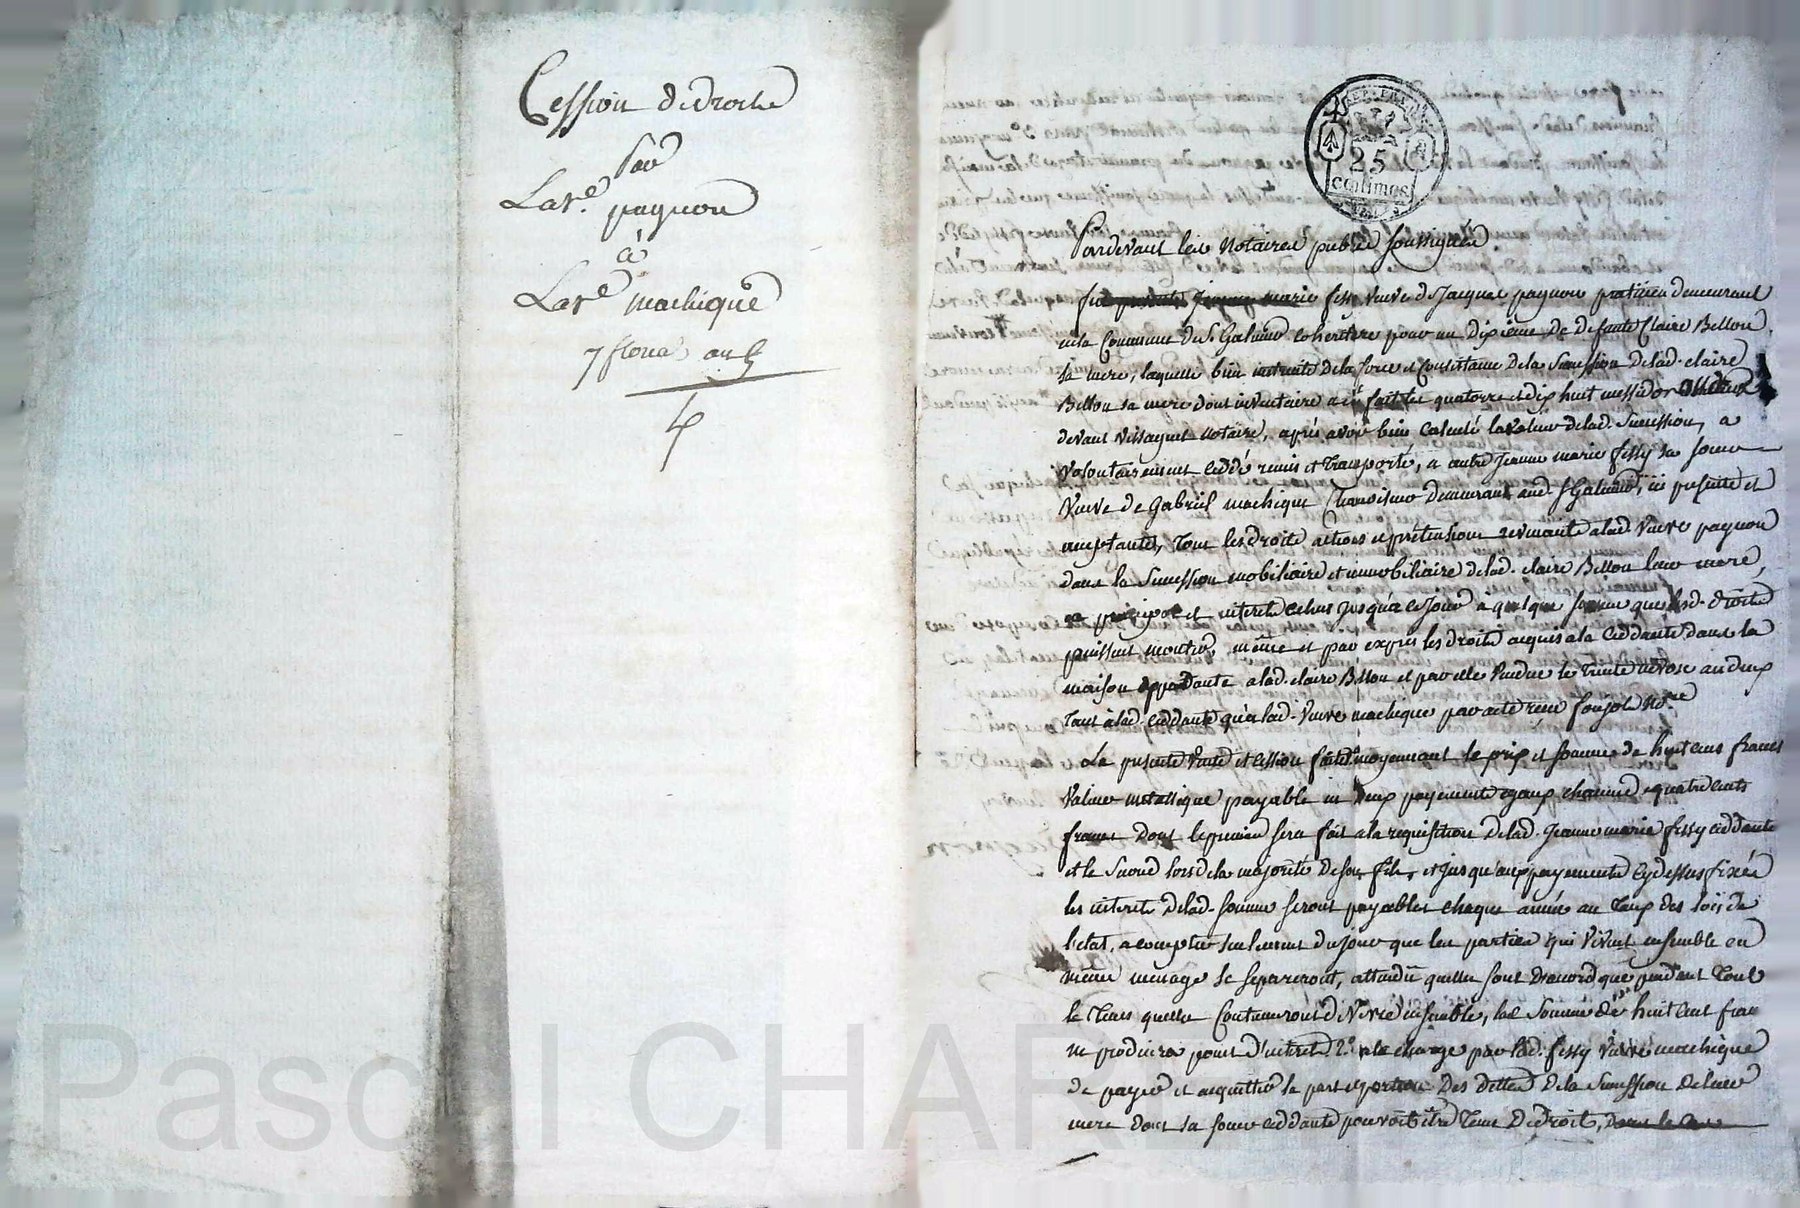 Cession de droits
par
La ve. pagnon
à
La ve machique
7 floreal an 5
REP. FRA.
25
centimes
Pardevant les Notaires publics soussignés.
fut marie fessy veuve de Jacques pagnon praticien demeurant
en la Commune de St. Galmier cohéritière pour un dixième de defunte Claire Billon
sa mere, laquelle bien instruite de la force et Consistance de la Succession de lad. claire
Billon sa mere dont inventaire a été fait les quatorze et dix huit messidor
devant vissaguet notaire, après avoir bien Calculé la valeur de lad. Succession, a
volontairement cédé remis et transporté, a autre Jeanne marie fessy sa soeur
veuve de Gabriël machique Chamoiseur demeurant aud. St Galmier, ici presente et
acceptante, tous les droits actions et prétensions revenants a lad. veuve pagnon
dans la Succession mobiliaire et immobiliaire de lad. claire Billon leur mere,
en principal et interets echus jusqu'à ce jour à quelque somme que lesd. droits
puissent monter, même et par exprès les droits acquis a la cédante dans la
maison appartenante a lad. claire Billon et par elle vendue le trente nivose an deux
tant à lad. cédante qu'a lad. veuve machique par acte reçu foujols nore.
La presente vente et cession faite moyennant le prix et somme de huit cens francs
valeur métallique payable en deux payements egaux chacun de quatre cents
francs dont le premier sera fait a la requisition de lad. Jeanne marie fessy cédante
et le second lors de la majorité de son fils, et jusqu'aux payements cy dessus fixés
les interets de lad. somme seront payables chaque année au taux des loix de
l'etat, a compter seulement du jour que les parties qui vivent ensemble en
même menage se separeront, attendu quelles sont d'accord que pendant tout
le tems quelles Continueront de vivre ensemble, lad. somme de huit cent francs
ne produira point d'interets. 2° a la charge par lad. fessy veuve machique
de payer et acquitter la part et portion des dettes de la Succession de leur
mere dont sa soeur cédante pourroit être tenue de droit,
Pascal CHAR